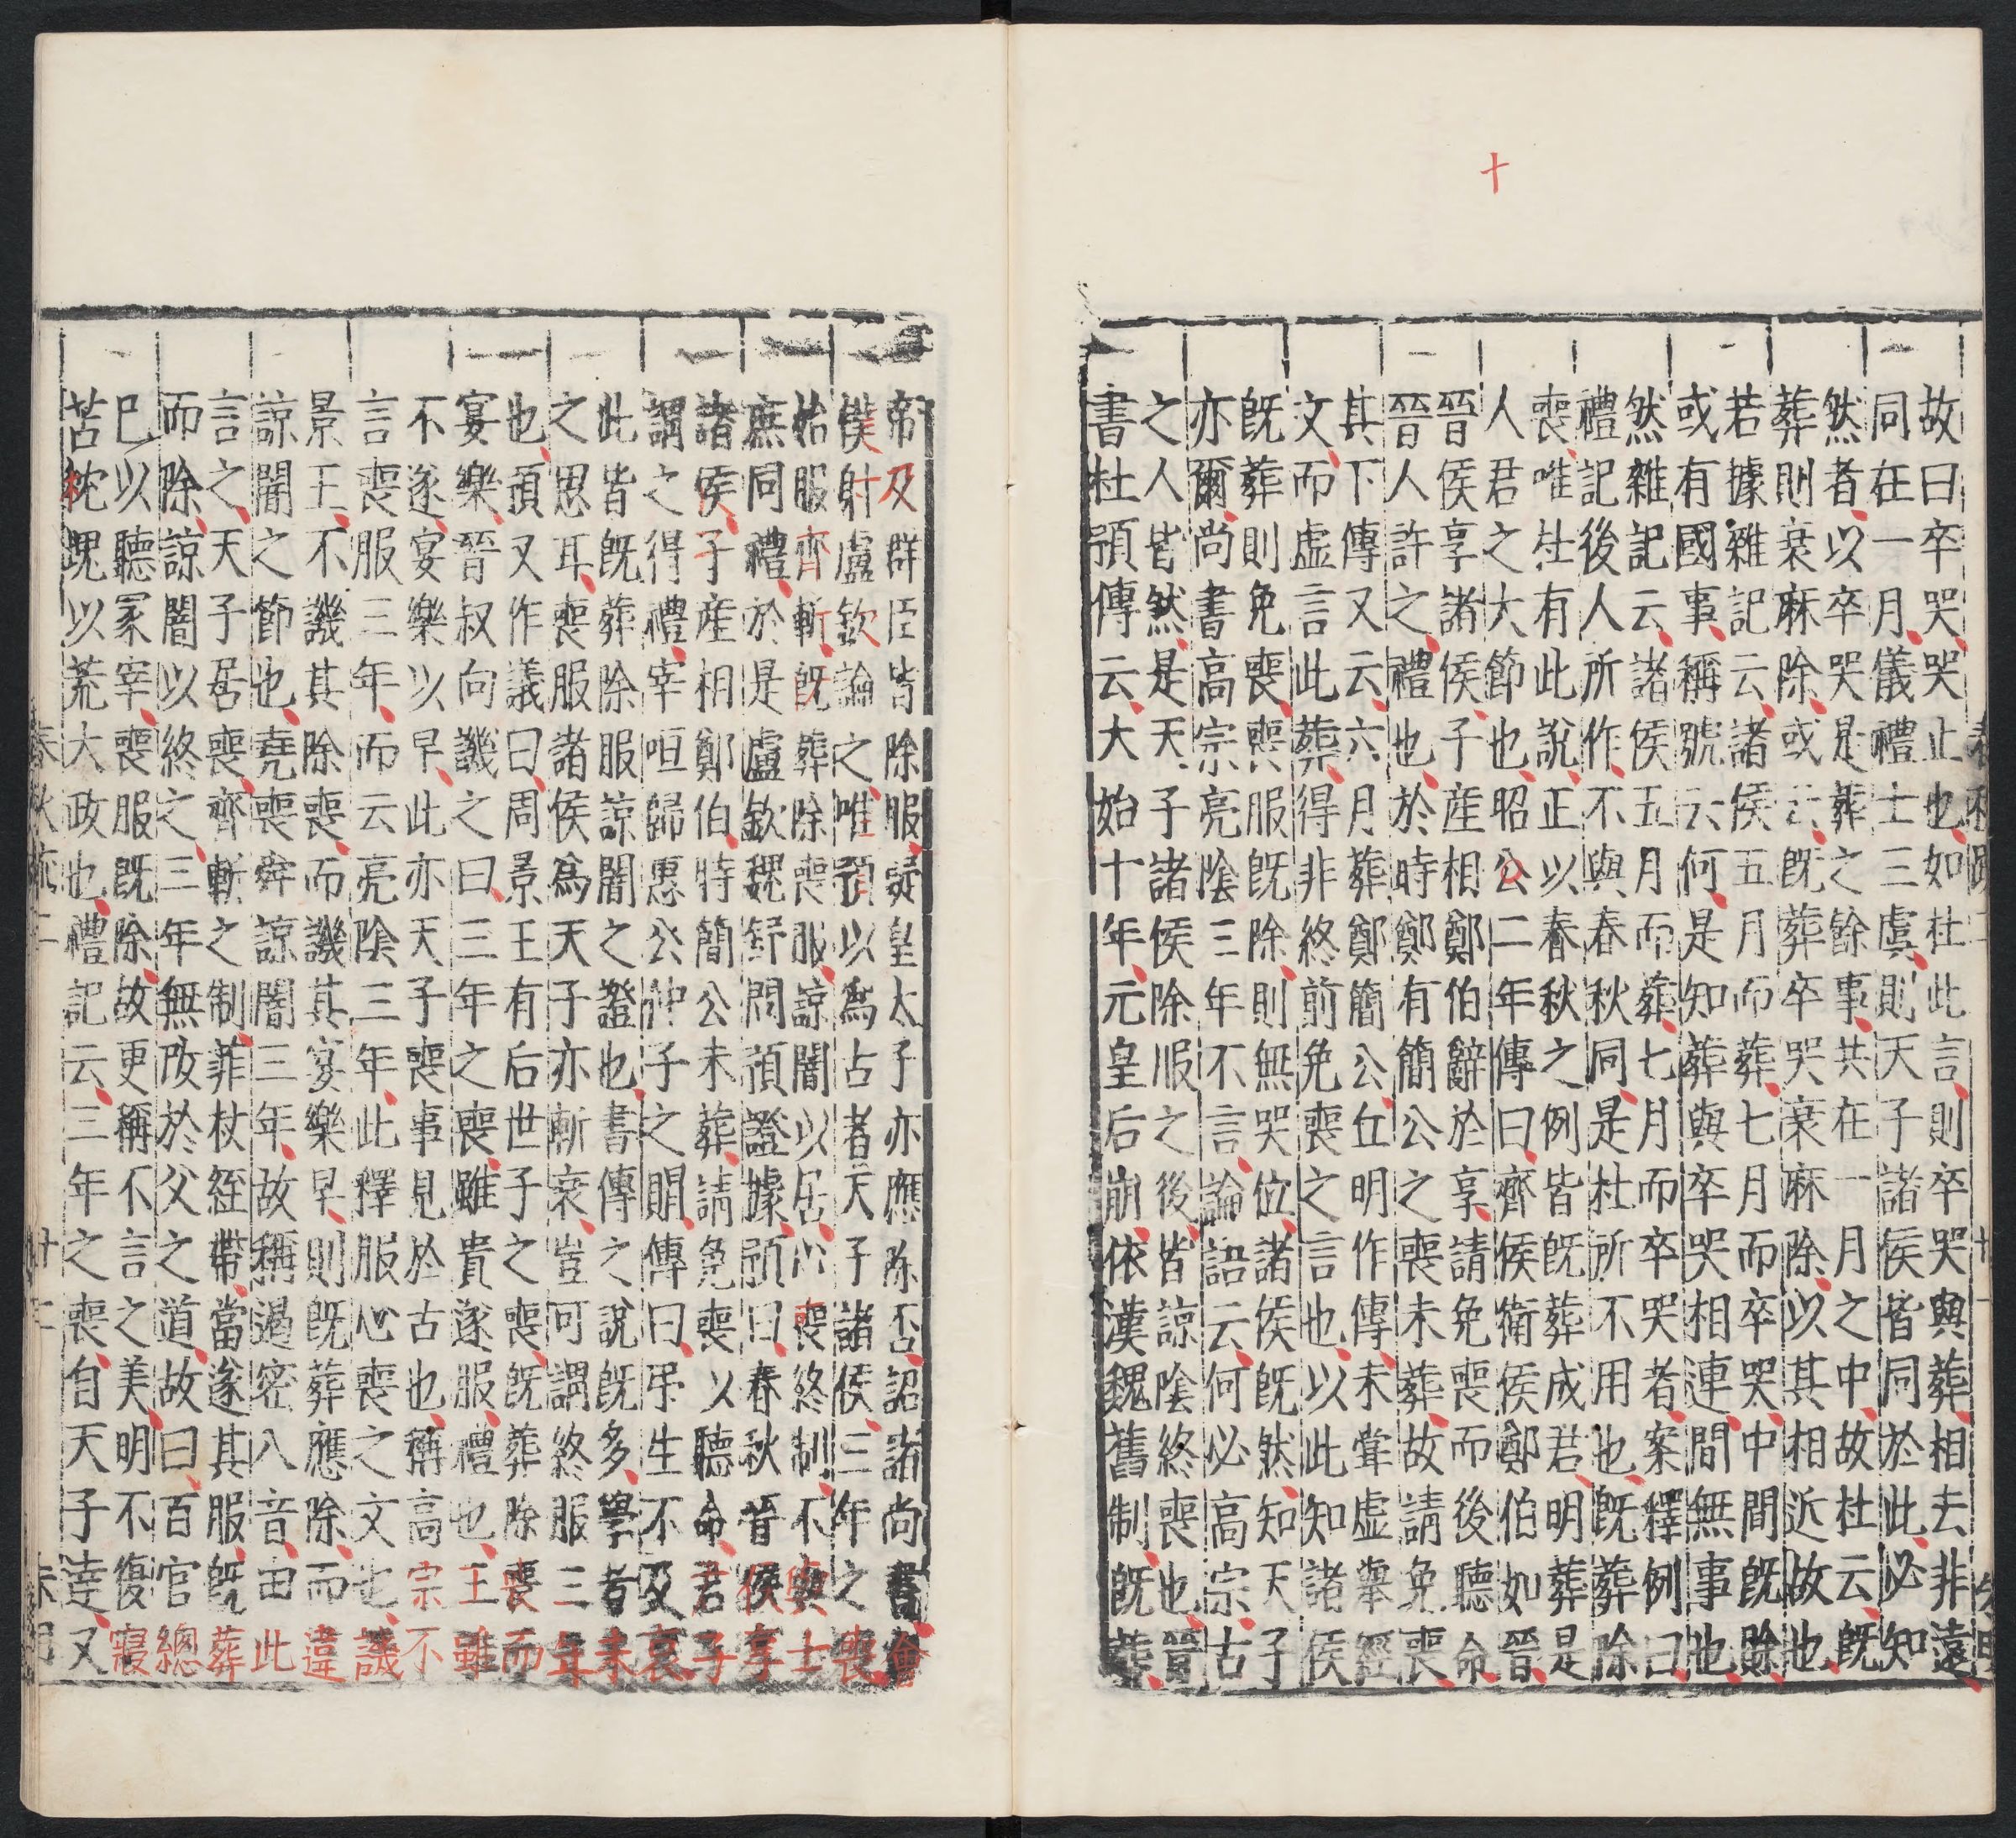 十
故曰卒哭哭止也如杜此言則卒哭與葬相去非遠
同在一月儀禮士三虞則天子諸侯皆同於此必知
然者以卒哭是葬之餘事共在一月之中故杜云既
葬則衰麻除或云既葬卒哭衰麻除以其相近故也
若據雜記云諸侯五月而葬七月而卒哭中間既賒
或有國事稱號云何是知葬與卒哭相連間無事也
然雜記云諸侯五月而葬七月而卒哭者案釋例曰
禮記後人所作不與春秋同是杜所不用也既葬除
喪唯杜有此說正以春秋之例皆既葬成君明葬是
人君之大節也昭公二年傳曰齊侯衛侯鄭伯如晉
晉侯享諸侯子產相鄭伯辭於享請免喪而後聽命
晉人許之禮也於時鄭有簡公之喪未葬故請免喪
其下傳又云六月葬鄭簡公丘明作傳未嘗虛舉經
文而虛言此葬得非終前免喪之言也以此知諸侯
既葬則免喪喪服既除則無哭位諸侯既然知天子
亦爾尚書高宗亮陰三年不言論語云何必高宗古
之人皆然是天子諸侯除服之後皆諒陰終喪也晉
書杜預傳云大始十年元皇后崩依漢魏舊制既葬
春秋疏二 十一
帝及群臣皆除服疑皇太子亦應除否詔諸尚書會
僕射盧欽論之唯預以為古者天子諸侯三年之喪
始服齊斬既葬除喪服諒闇以居心喪終制不與士
庶同禮於是盧欽魏舒問預證據預曰春秋晉侯享
諸侯子產相鄭伯時簡公未葬請免喪以聽命君子
謂之得禮宰咺歸惠公仲子之賵傳曰弔生不及哀
此皆既葬除服諒闇之證也書傳之說既多學者未
之思耳喪服諸侯為天子亦斬衰豈可謂終服三年
也預又作議曰周景王有后世子之喪既葬除喪而
宴樂晉叔向譏之曰三年之喪雖貴遂服禮也王雖
不遂宴樂以早此亦天子喪事見於古也稱高宗不
言喪服三年而云亮陰三年此釋服心喪之文也譏
景王不譏其除喪而譏其宴樂早則既葬應除而違
諒闇之節也堯喪舜諒闇三年故稱遏密八音由此
言之天子居喪齊斬之制菲杖絰帶當遂其服既葬
而除諒闇以終之三年無改於父之道故曰百官總
已以聽冢宰喪服既除故更稱不言之美明不復寢
苫枕塊以荒大政也禮記云三年之喪自天子達又
春秋疏二 十二